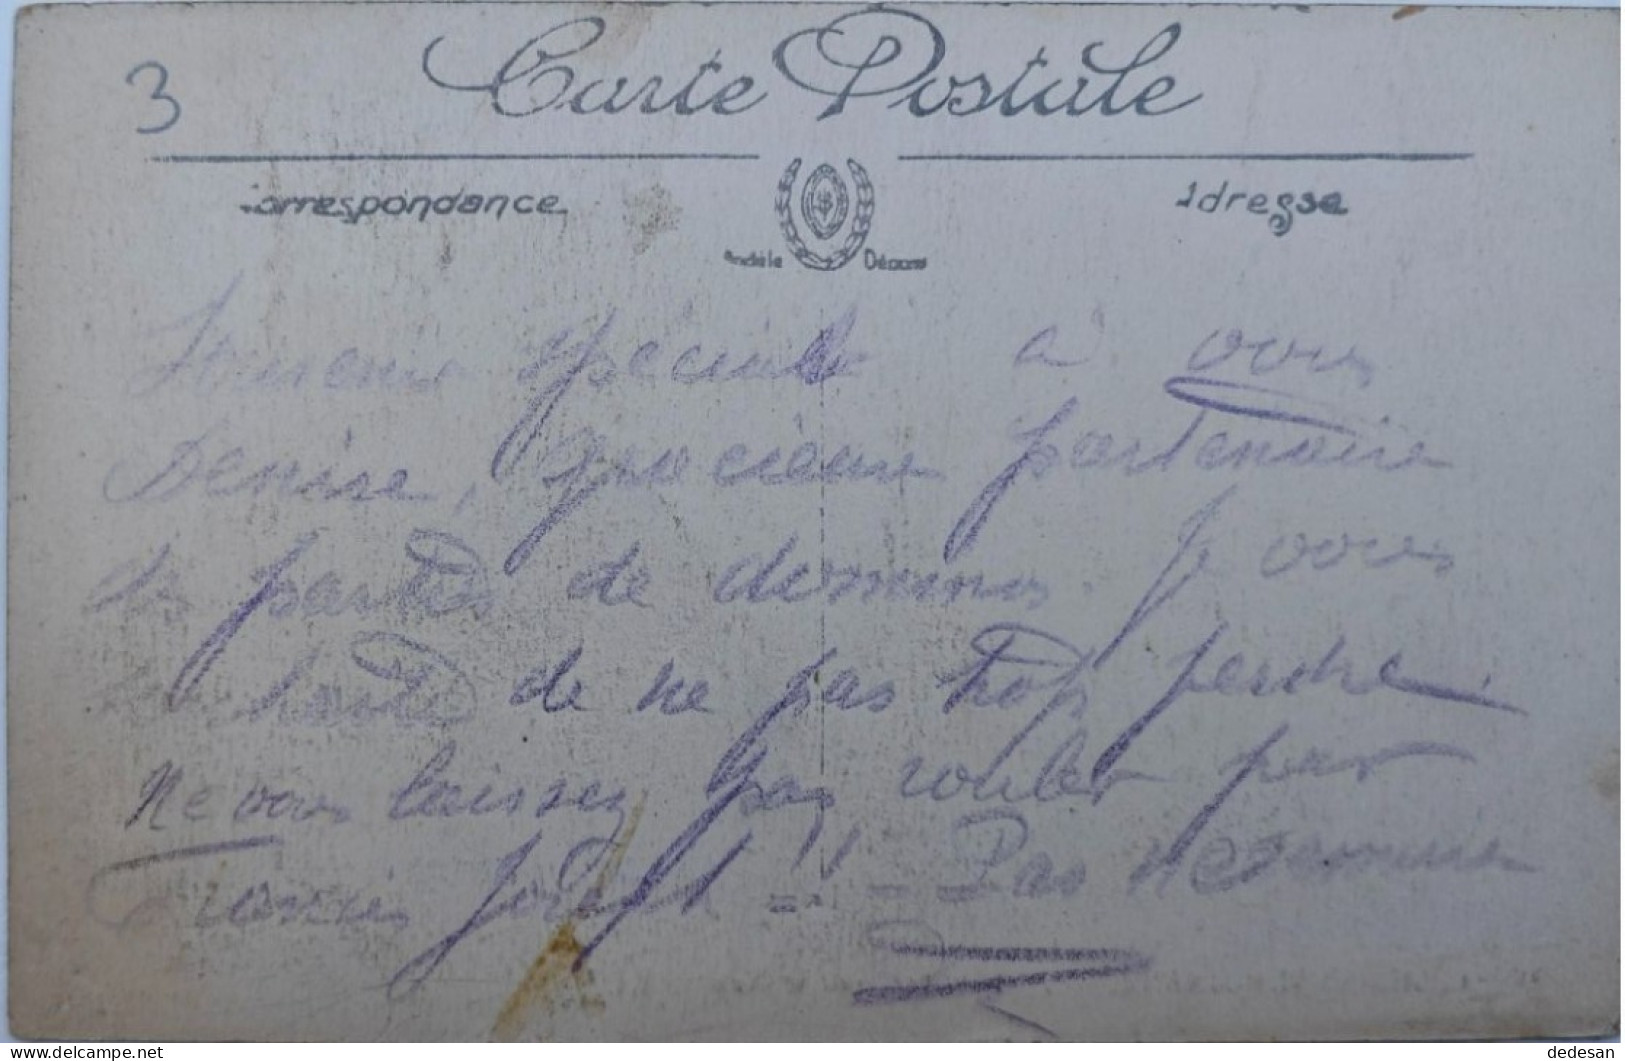 3
Carte Postale
Correspondance
Adresse
Modèle Déposé
Souvenir spécial à vous
Denise, gracieuse partenaire
des parties de dominos. Je vous
souhaite de ne pas trop perdre.
Ne vous laissez pas rouler par
Francis Joseph!! = Pas
delcampe.net
dedesan